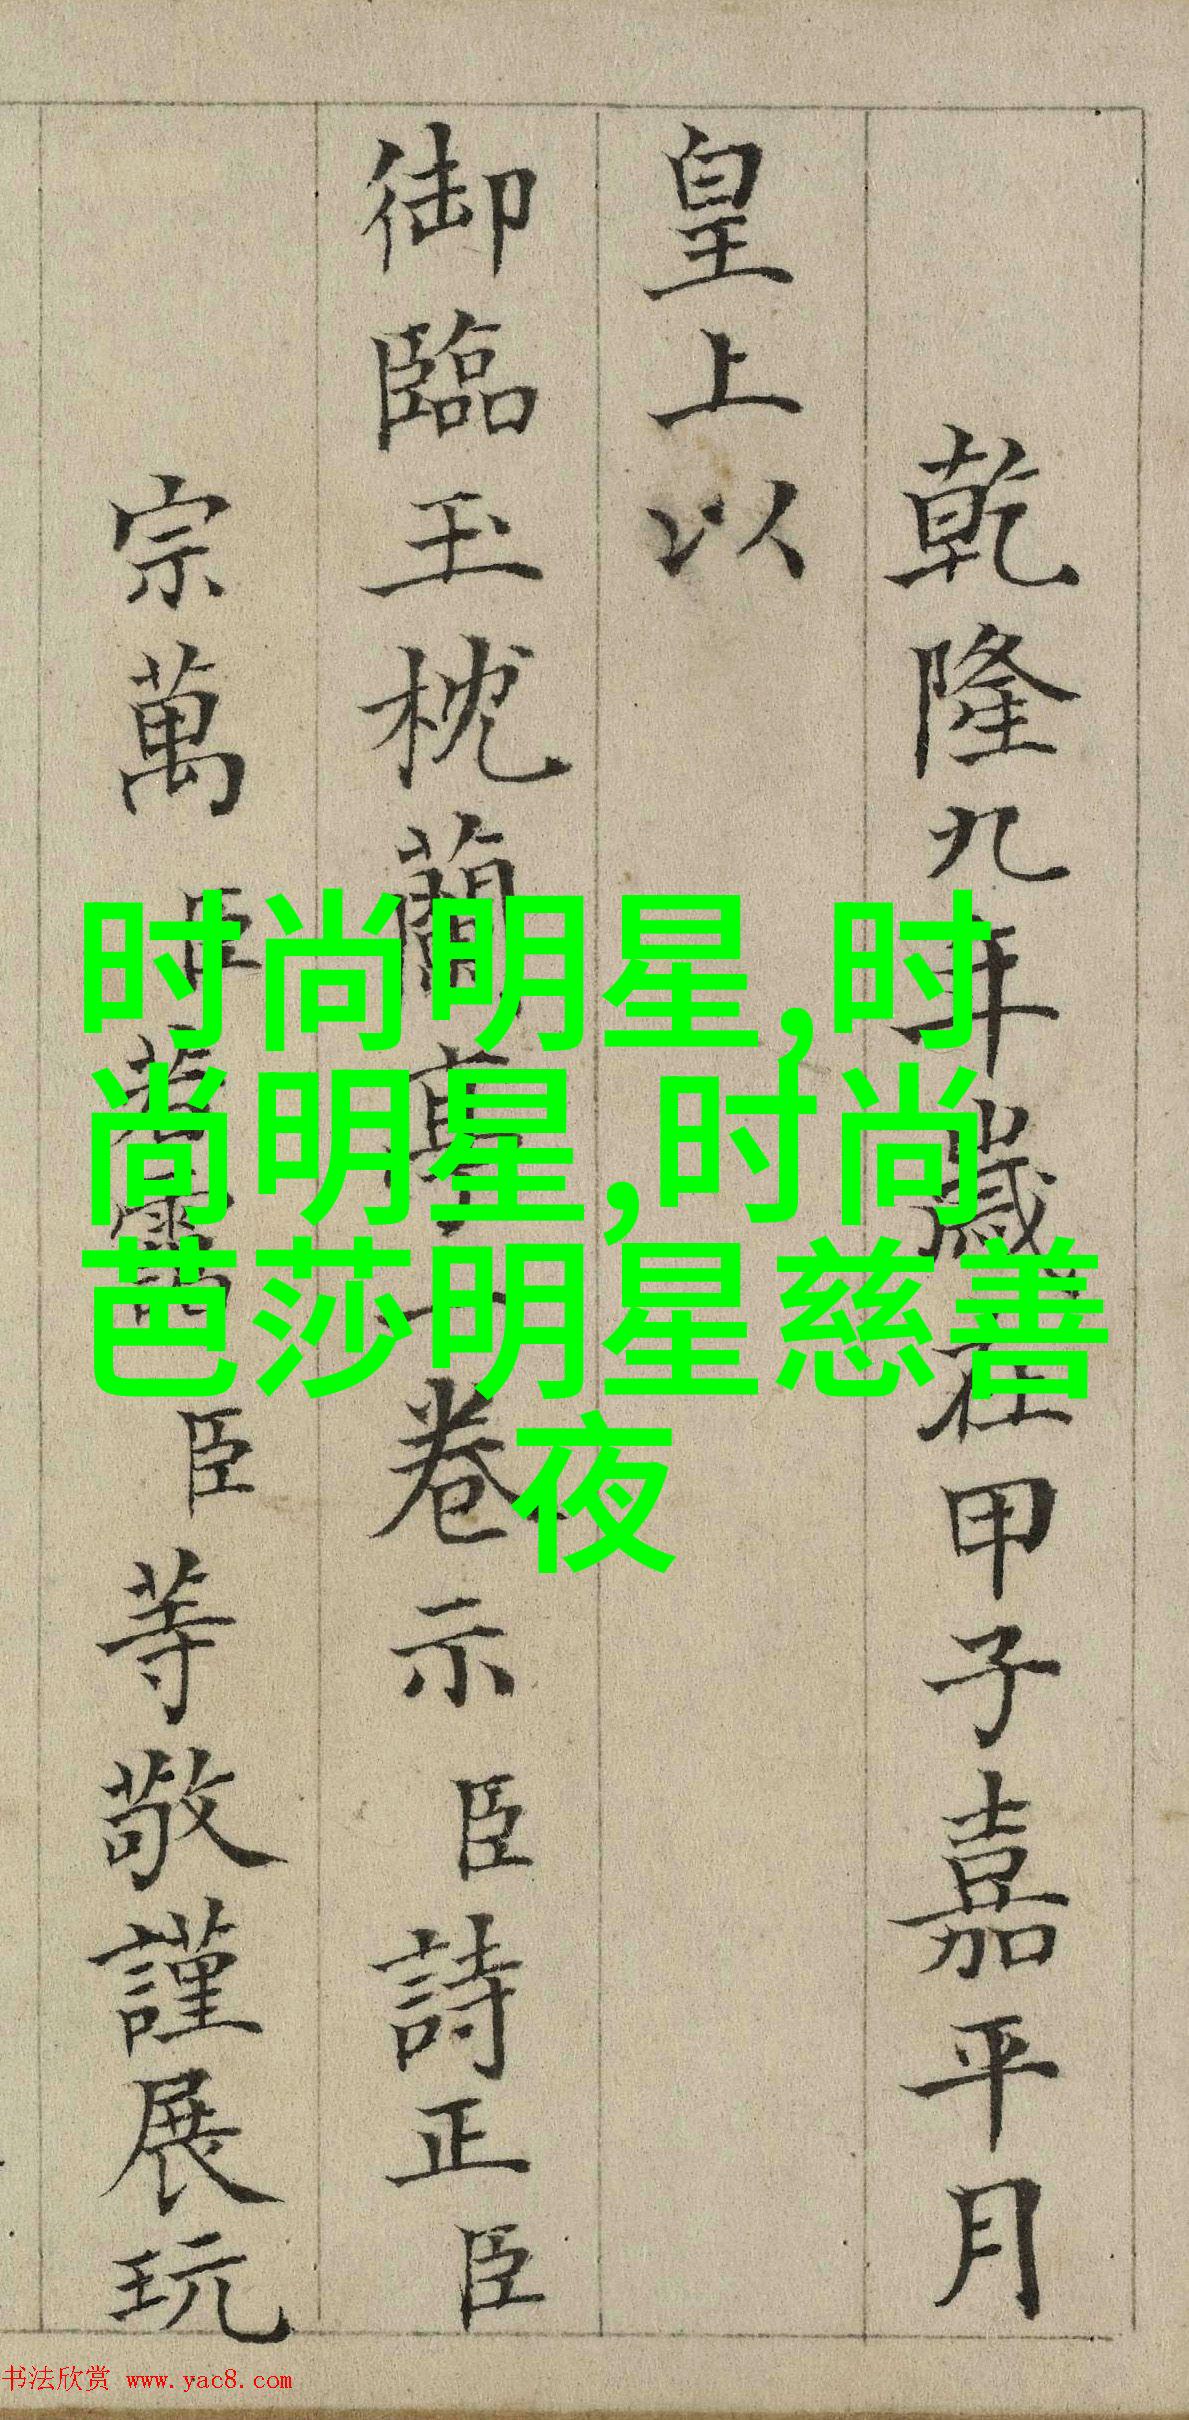 乾隆九年歲在甲子嘉平月
皇上以
御臨玉枕蘭亭一卷示臣詩正臣
宗萬臣若靄臣等敬謹展玩
时尚明星,时
尚明星,时尚
芭莎明星慈善
夜
书法欣赏 www.yac8.com